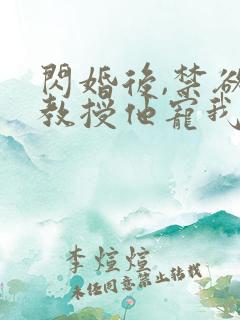 閃婚後,禁欲
教授他寵我
李煊煊
未经同意禁止转载